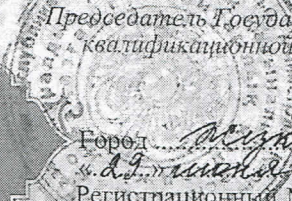 Председатель Госуда
квалификационной
Город
«29» июня
Регистрационный